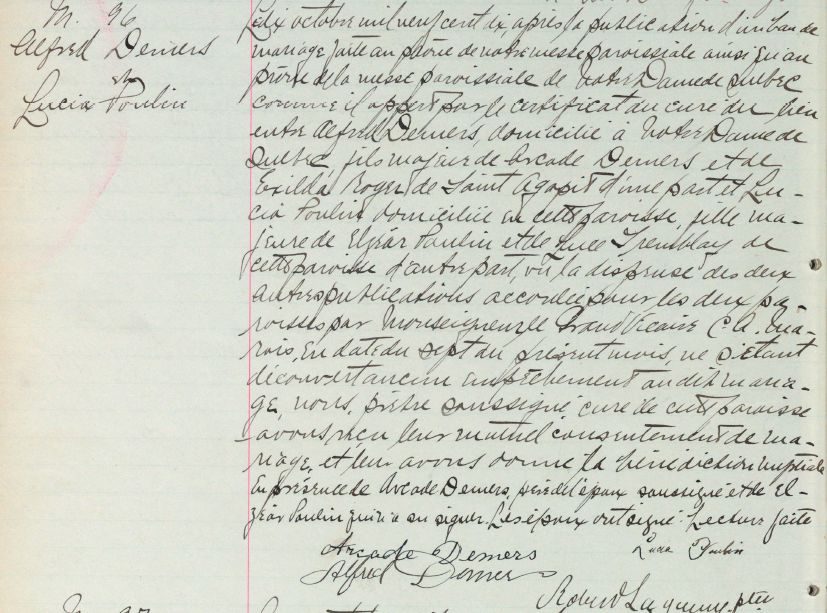 M. 96
Alfred Demers
&
Lucia Poulin
Le dix octobre mil neuf cent dix, après la publication d'un ban de
mariage faite au prône de notre messe paroissiale ainsi qu'au
prône de la messe paroissiale de Notre Dame de Québec
comme il appert par le certificat du curé du lieu
entre Alfred Demers, domicilié à Notre Dame de
Québec, fils majeur de Arcade Demers et de
Exilda Roger de Saint Agapit d'une part et Lu-
cia Poulin domiciliée en cette paroisse, fille ma-
jeure de Elzéar Poulin et de Luce Tremblay de
cette paroisse d'autre part, vu la dispense des deux
autres publications accordée pour les deux pa-
roisses par Monseigneur le Grand Vicaire C. A. Ma-
rois, en date du sept du présent mois, ne s'étant
découvert aucun empêchement au dit maria-
ge, nous, prêtre soussigné, curé de cette paroisse
avons reçu leur mutuel consentement de ma-
riage, et leur avons donné la bénédiction nuptiale
en présence de Arcade Demers, père de l'époux soussigné et de El-
zéar Poulin qui n'a su signer. Les époux ont signé. Lecture faite
Arcade Demers
Lucia Poulin
Alfred Demers
Robert Lagueux, ptre
M. 97